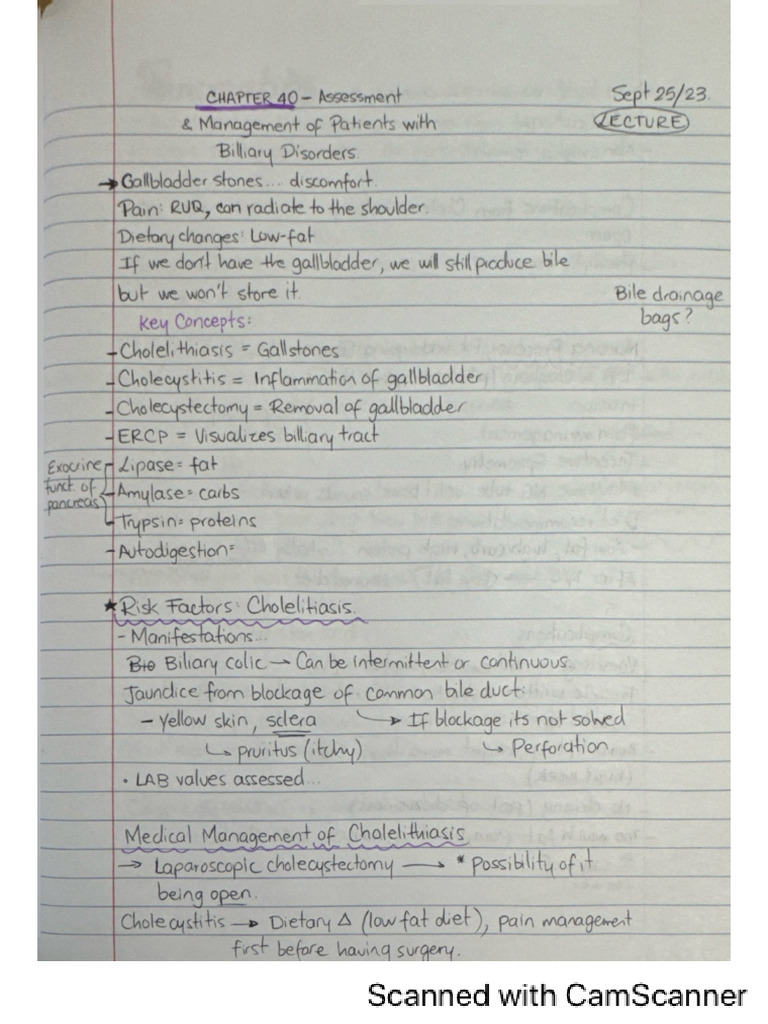 CHAPTER 40 - Assessment
Sept 25/23.
& Management of Patients with
LECTURE
Billiary Disorders.
→ Gallbladder stones.... discomfort.
Pain: RUQ, can radiate to the shoulder.
Dietary changes: Low-fat
If we don't have the gallbladder, we will still produce bile
but we won't store it.
Bile drainage
bags?
Key Concepts:
- Cholelithiasis = Gallstones
- Cholecystitis = Inflammation of gallbladder
- Cholecystectomy = Removal of gallbladder
- ERCP = Visualizes billiary tract
Exocrine
funct. of
pancreas
Lipase = fat
Amylase = carbs
Trypsin = proteins
- Autodigestion =
★ Risk Factors: Cholelitiasis.
- Manifestations...
Bio Biliary colic → Can be intermittent or continuous.
Jaundice from blockage of common bile duct:
- Yellow skin, sclera → If blockage its not solved
↳ pruritus (itchy) ↳ Perforation
• LAB values assessed...
Medical Management of Cholelithiasis
→ Laparoscopic cholecystectomy → * Possibility of it
being open.
Cholecystitis → Dietary Δ (low fat diet), pain management
first before having surgery.
Scanned with CamScanner